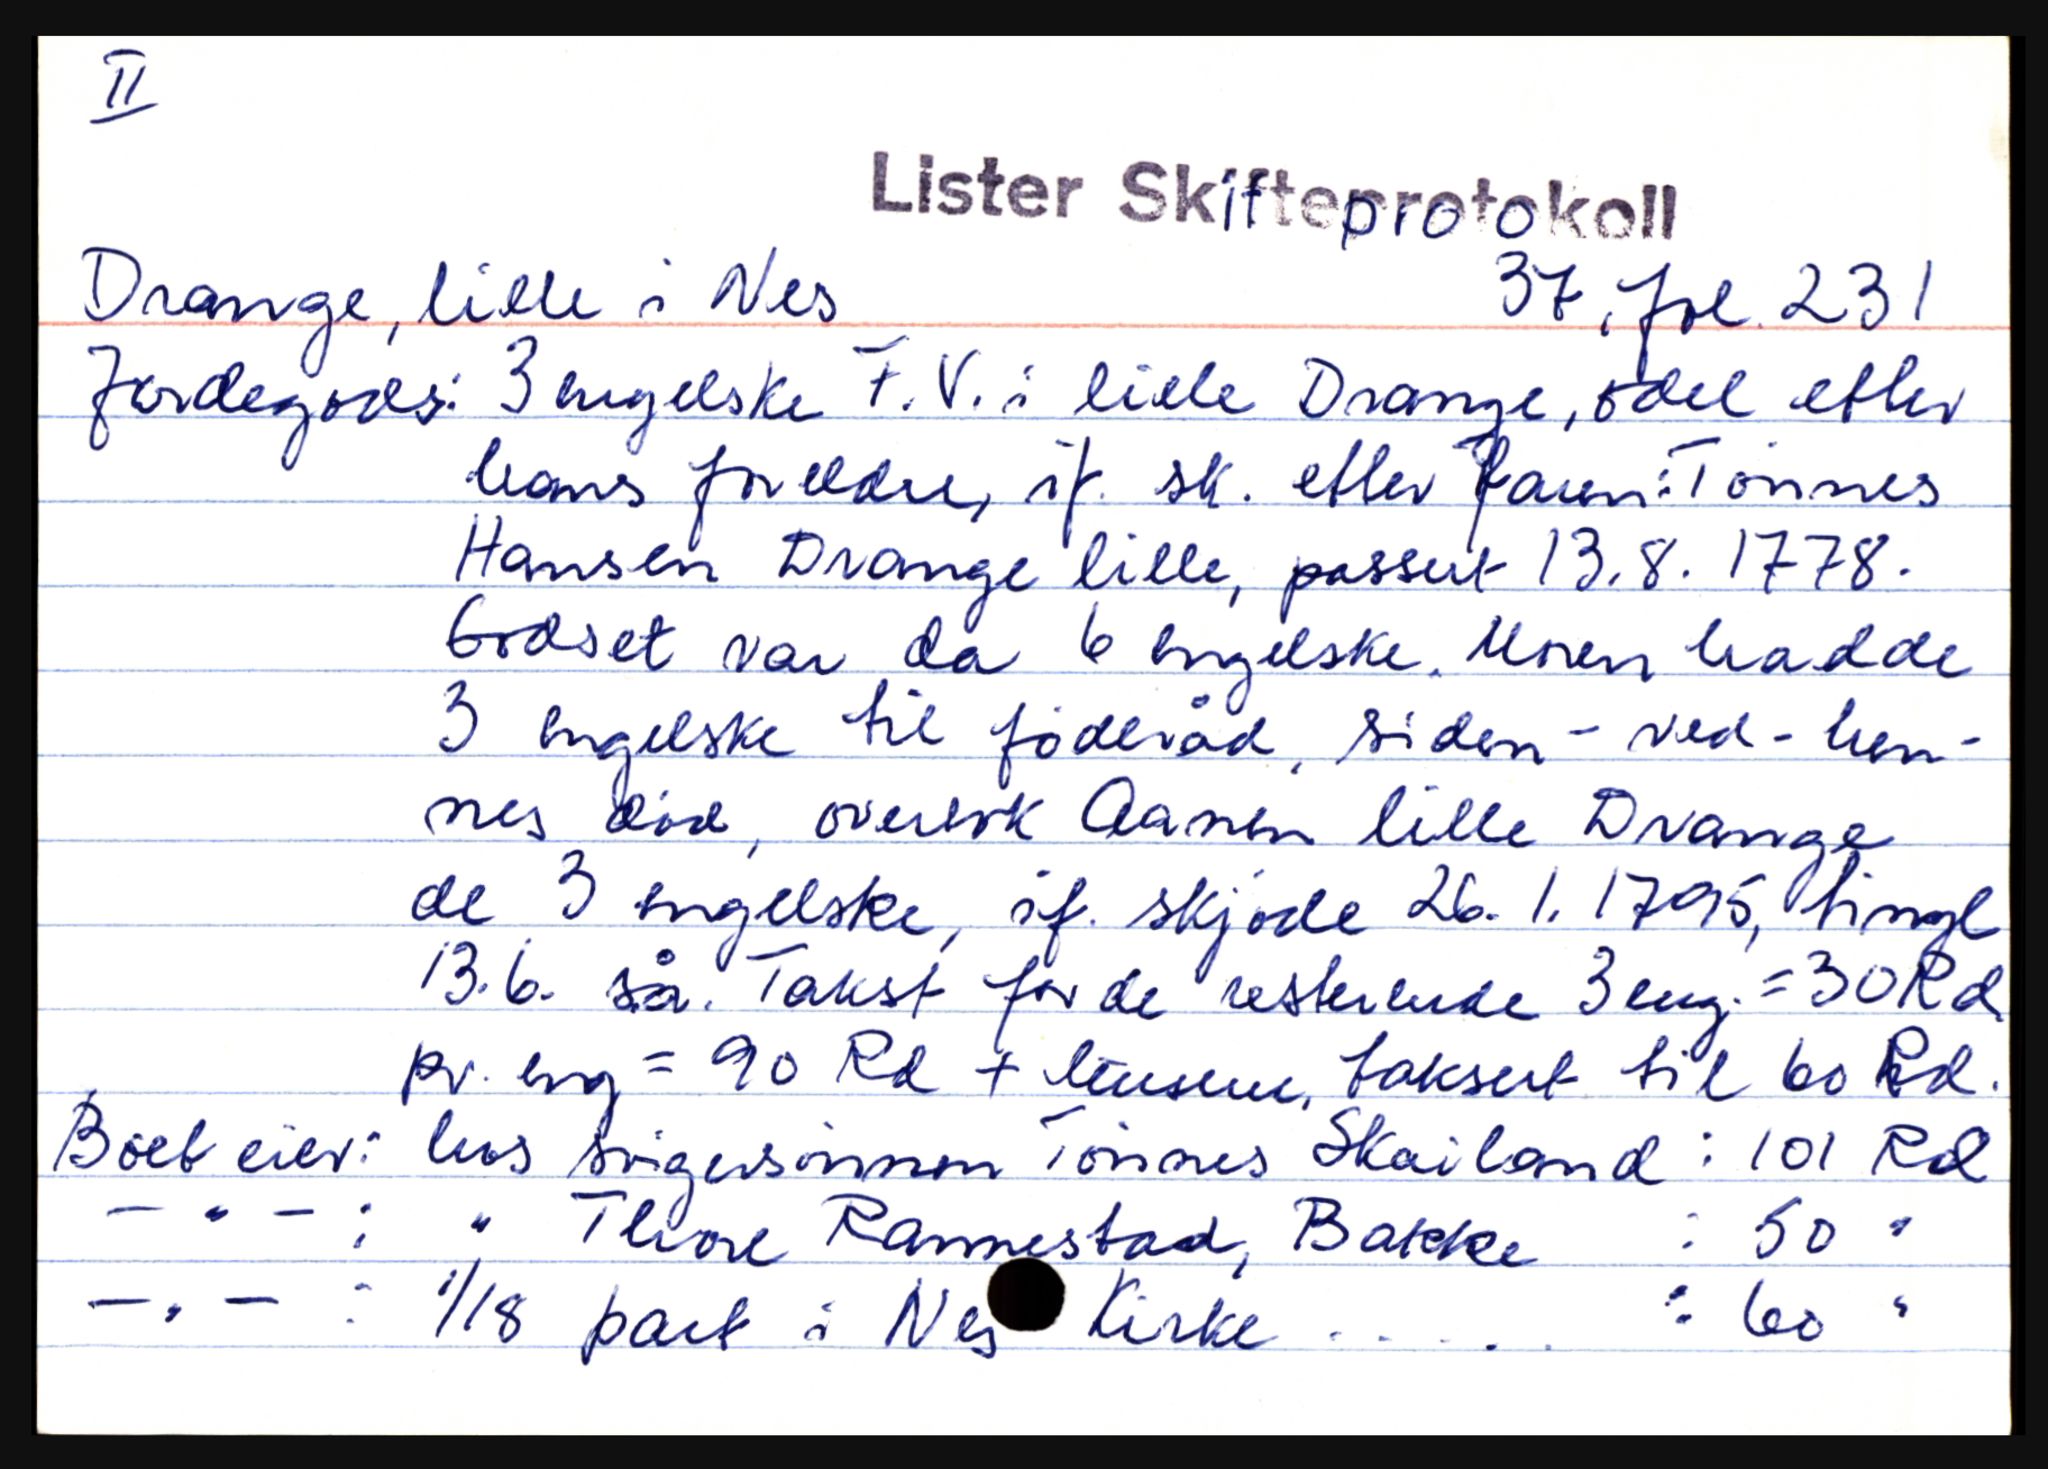 II
Lister Skifteprotokoll
Drange, lille i Nes 37, fol. 231
Jordegods: 3 engelske F.V. i lille Drange, odel etter
hans foreldre, if. sk. etter Faren: Tønnes
Hansen Drange lille, passert 13.8.1778.
Godset var da 6 engelske. Moren hadde
3 engelske til föderåd, siden - ved - hen-
nes död, overtok Aanen lille Drange
de 3 engelske, if. skjöde 26.1.1795, tingl
13.6. så. Takst for de resterende 3 eng. = 30 Rd.
pr. eng = 90 Rd + husene, taksert til 60 Rd.
Boet eier: hos svigersönnen Tönnes Skailand : 101 Rd
— " — : " Thore Rannestad, Bakke : 50 "
— " — : 1/18 part i Nes Kirke ..... : 60 "